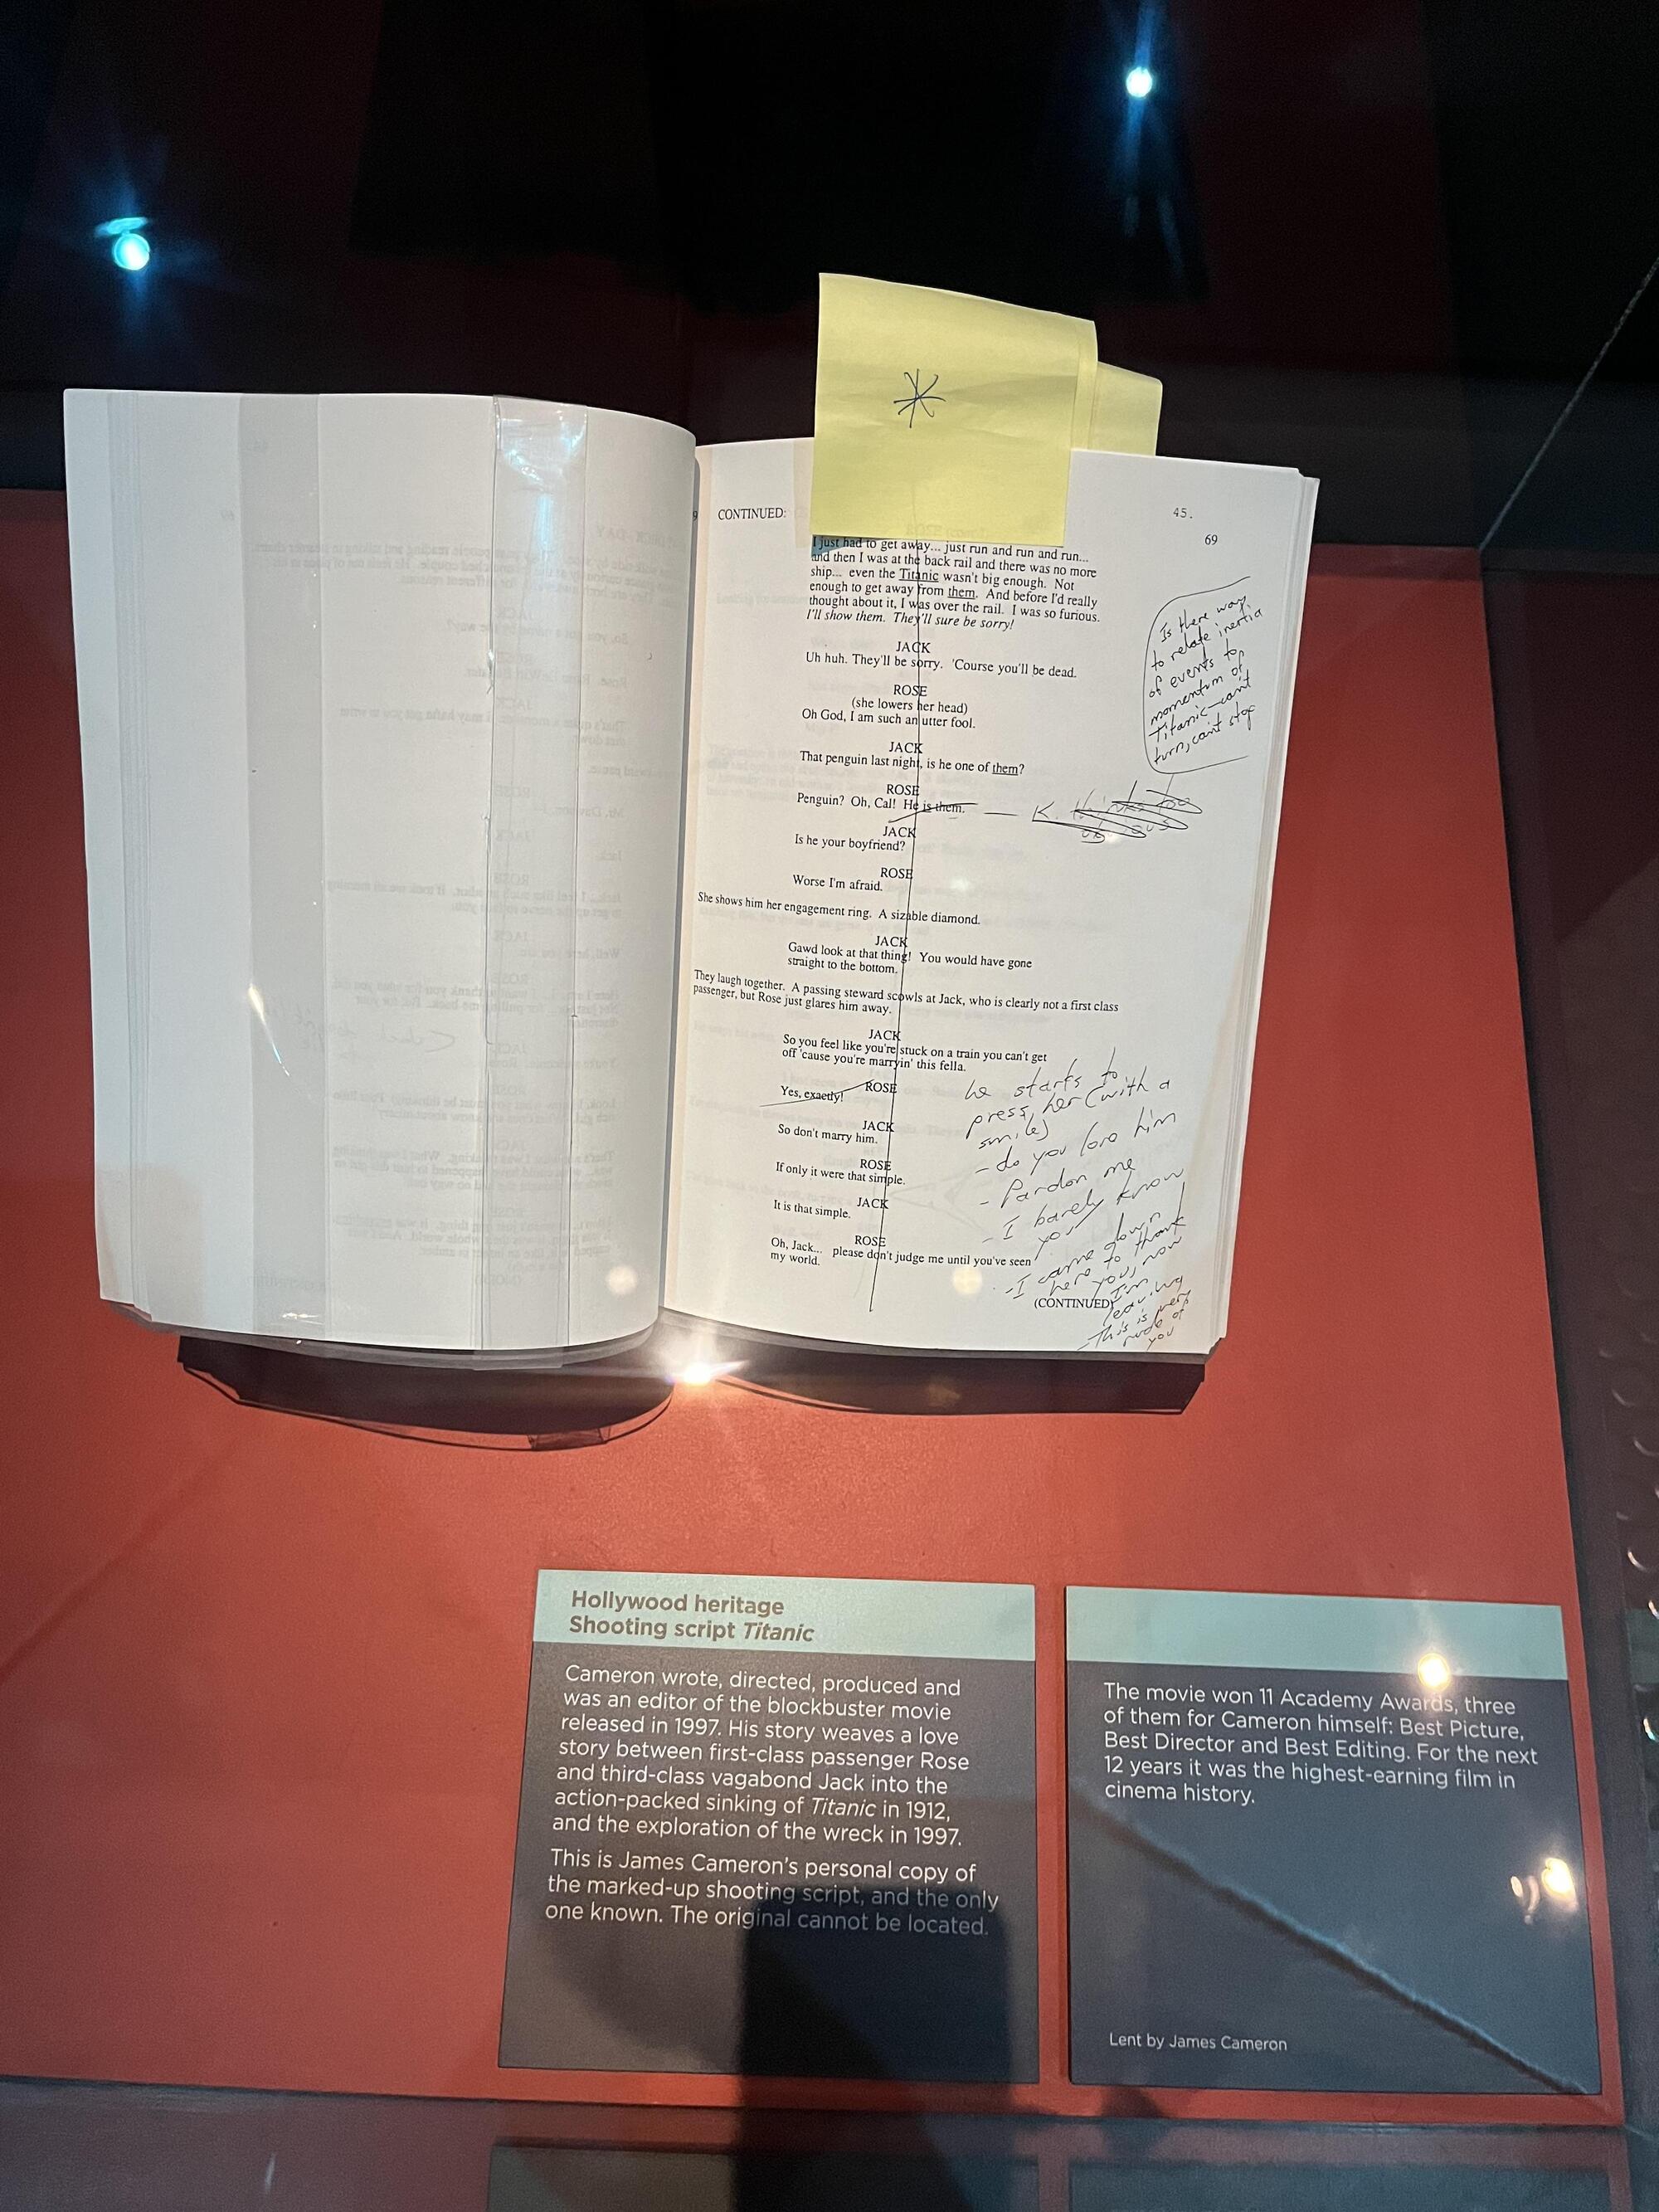 *
CONTINUED:
45.
69
I just had to get away... just run and run and run...
and then I was at the back rail and there was no more
ship... even the Titanic wasn't big enough. Not
enough to get away from them. And before I'd really
thought about it, I was over the rail. I was so furious.
I'll show them. They'll sure be sorry!
Is there way
to relate inertia
of events to
momentum of
Titanic—can't
turn, can't stop
JACK
Uh huh. They'll be sorry. 'Course you'll be dead.
ROSE
(she lowers her head)
Oh God, I am such an utter fool.
JACK
That penguin last night, is he one of them?
ROSE
Penguin? Oh, Cal! He is them.
— K. thinks too
JACK
Is he your boyfriend?
ROSE
Worse I'm afraid.
She shows him her engagement ring. A sizable diamond.
JACK
Gawd look at that thing! You would have gone
straight to the bottom.
They laugh together. A passing steward scowls at Jack, who is clearly not a first class
passenger, but Rose just glares him away.
JACK
So you feel like you're stuck on a train you can't get
off 'cause you're marryin' this fella.
ROSE
Yes, exactly!
JACK
So don't marry him.
ROSE
If only it were that simple.
JACK
It is that simple.
ROSE
Oh, Jack... please don't judge me until you've seen
my world.
(CONTINUED)
he starts to
press her (with a
smile)
- do you love him
- Pardon me
- I barely know
you
- I came down
here to thank
you, now
I'm
leaving
- This is very
rude of
you
Hollywood heritage
Shooting script Titanic
Cameron wrote, directed, produced and
was an editor of the blockbuster movie
released in 1997. His story weaves a love
story between first-class passenger Rose
and third-class vagabond Jack into the
action-packed sinking of Titanic in 1912,
and the exploration of the wreck in 1997.
This is James Cameron's personal copy of
the marked-up shooting script, and the only
one known. The original cannot be located.
The movie won 11 Academy Awards, three
of them for Cameron himself: Best Picture,
Best Director and Best Editing. For the next
12 years it was the highest-earning film in
cinema history.
Lent by James Cameron